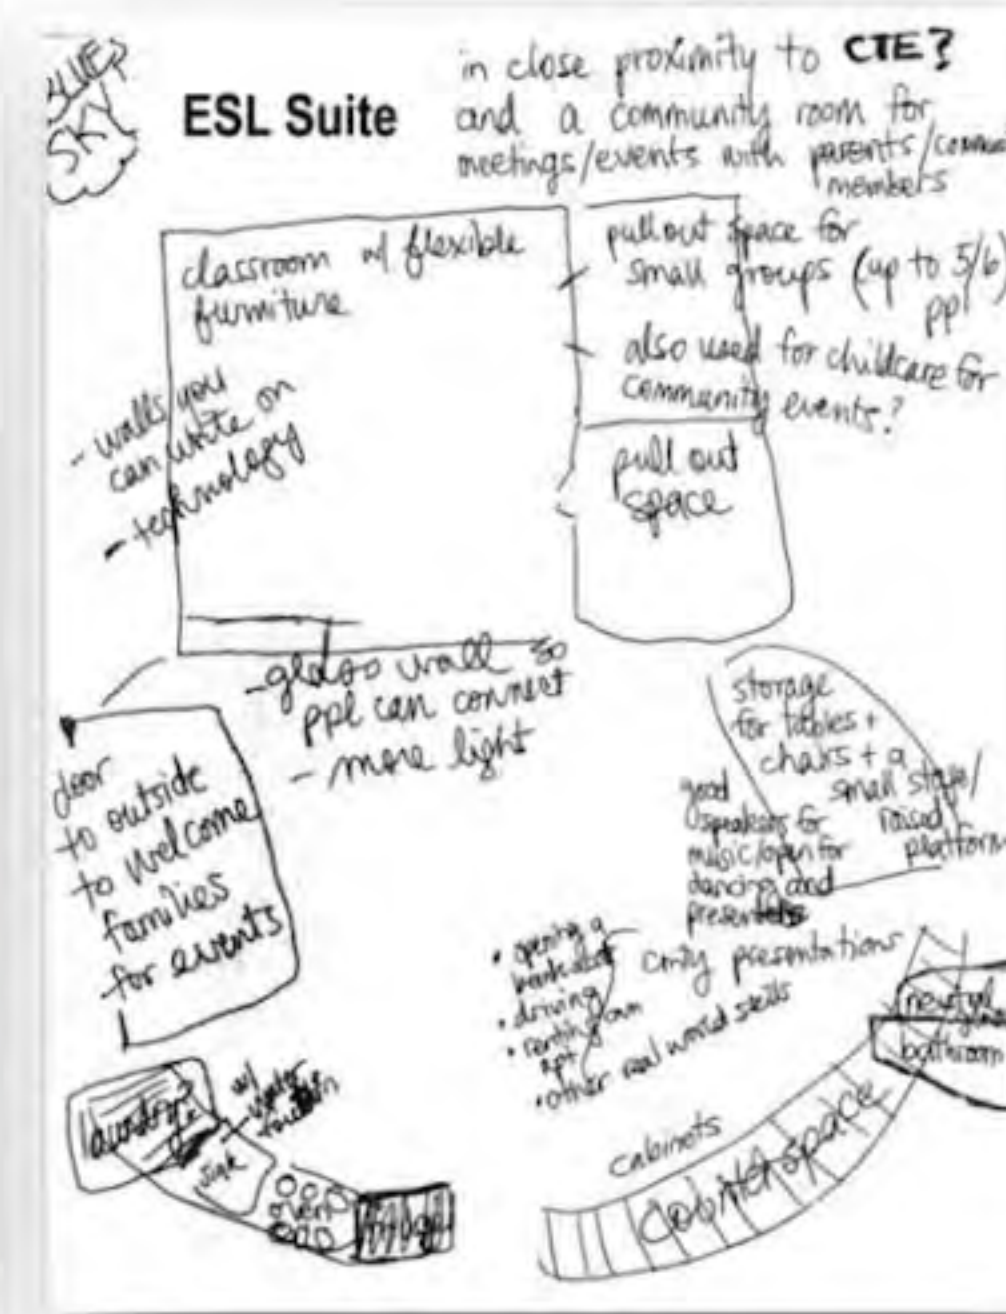 BLUE?
SKY
ESL Suite
in close proximity to CTE?
and a community room for
meetings/events with parents/commun
members
classroom w/ flexible
furniture
- walls you
can write on
- technology
pullout space for
small groups (up to 5/6)
ppl
also used for childcare for
community events?
pull out
space
- glass wall so
ppl can connect
- more light
door
to outside
to welcome
families
for events
storage
for tables +
chairs + a
small stage/
raised
platform
good
speakers for
music/open for
dancing and
• opening a
bank acct
• driving
• renting an
apt
• other real world skills
cmty presentations
laundry?
sink
w/
water
fountain
oven
fridge
cabinets
counter space
bathroom